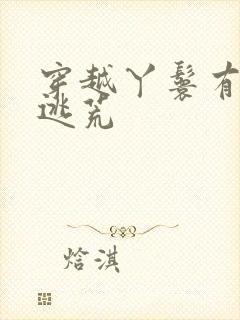 穿越丫鬟有
逃荒
焓淇